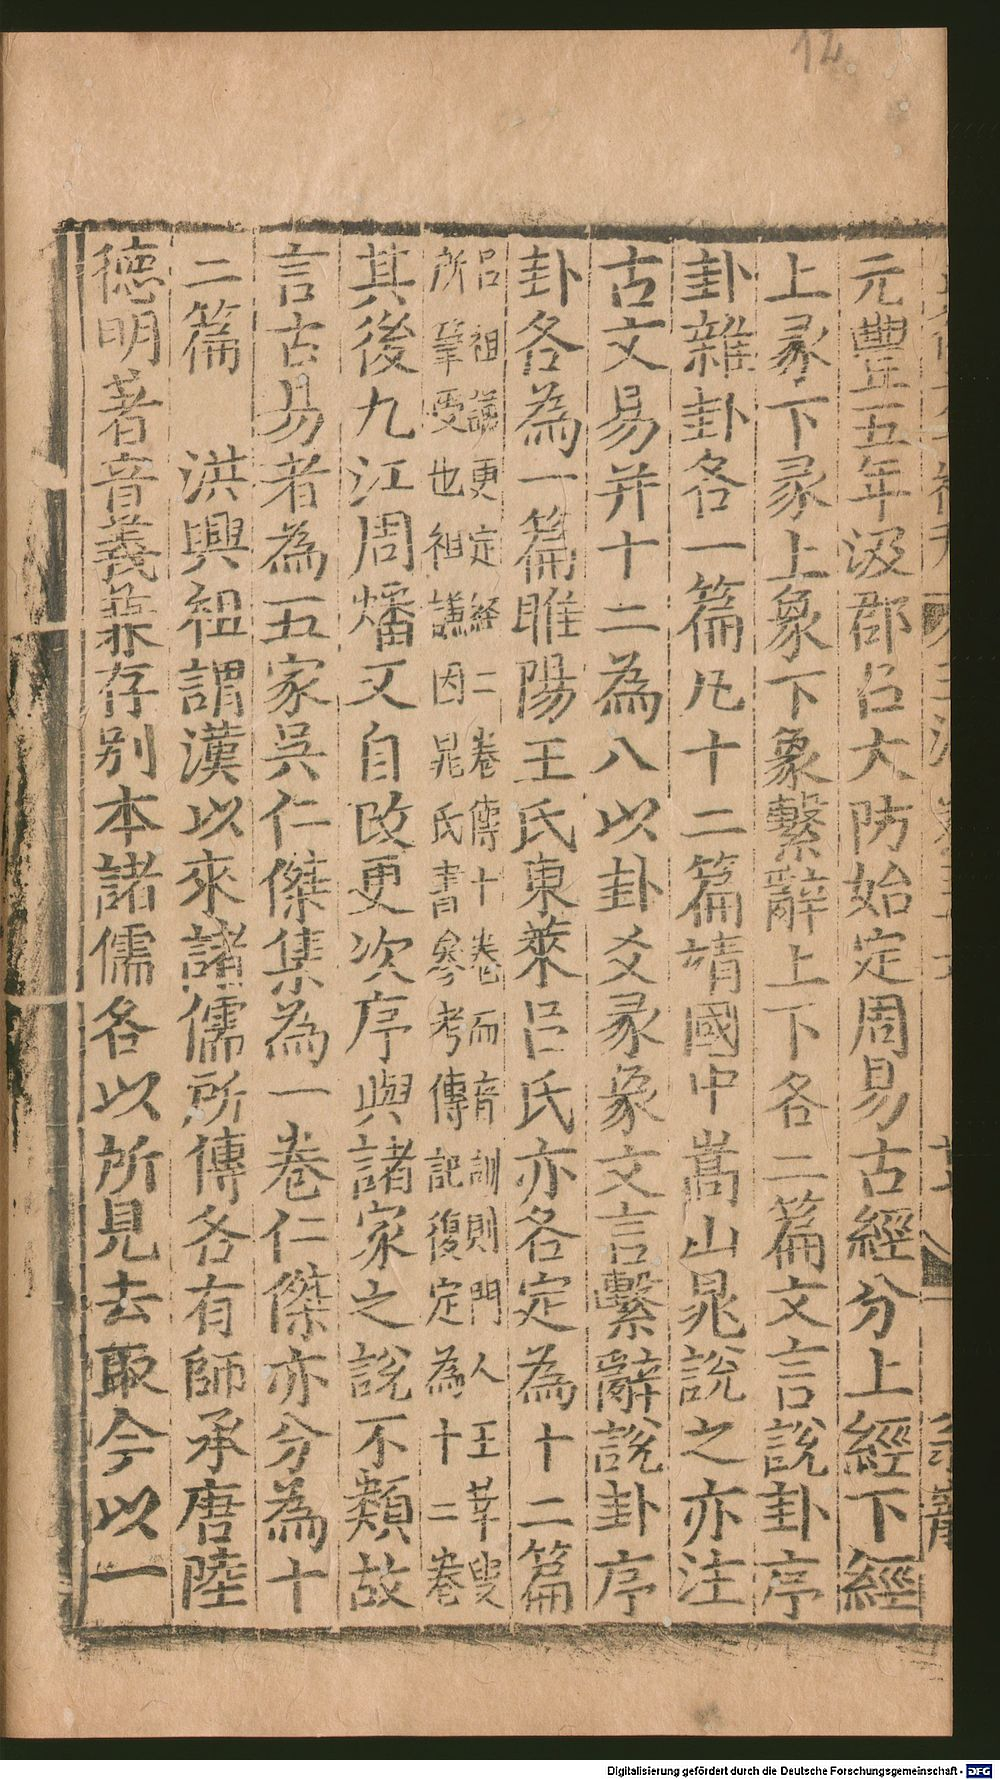 12
元豐五年汲郡呂大防始定周易古經分上經下經
上彖下彖上象下象繫辭上下各二篇文言說卦序
卦雜卦各一篇凡十二篇靖國中嵩山晁說之亦注
古文易并十二為八以卦爻彖象文言繫辭說卦序
卦各為一篇睢陽王氏東萊呂氏亦各定為十二篇
呂祖謙更定經二卷傳十卷而音訓則門人王莘叟
所筆受也祖謙因晁氏書參考傳記復定為十二卷
其後九江周燔又自改更次序與諸家之說不類故
言古易者為五家吳仁傑集為一卷仁傑亦分為十
二篇 洪興祖謂漢以來諸儒所傳各有師承唐陸
德明著音義兼存別本諸儒各以所見去取今以一
Digitalisierung gefördert durch die Deutsche Forschungsgemeinschaft - DFG